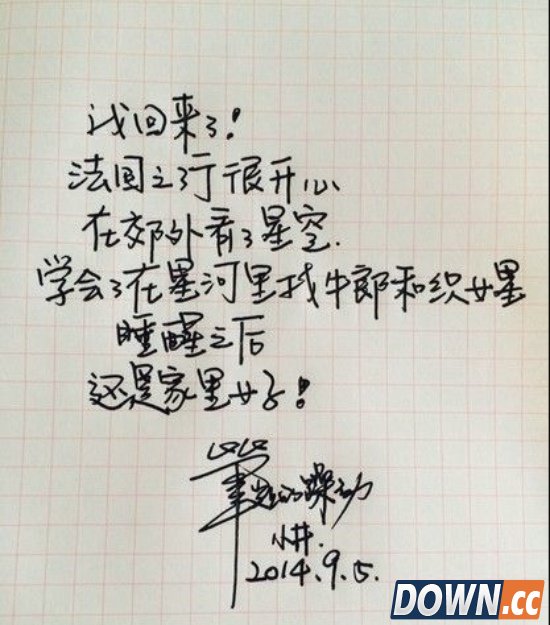 我回来了!
法国之行很开心
在郊外看了星空.
学会了在星河里找牛郎和织女星
睡醒之后
还是家里好!
笔短的躁动
小井.
2014.9.5.
DOWN.cc